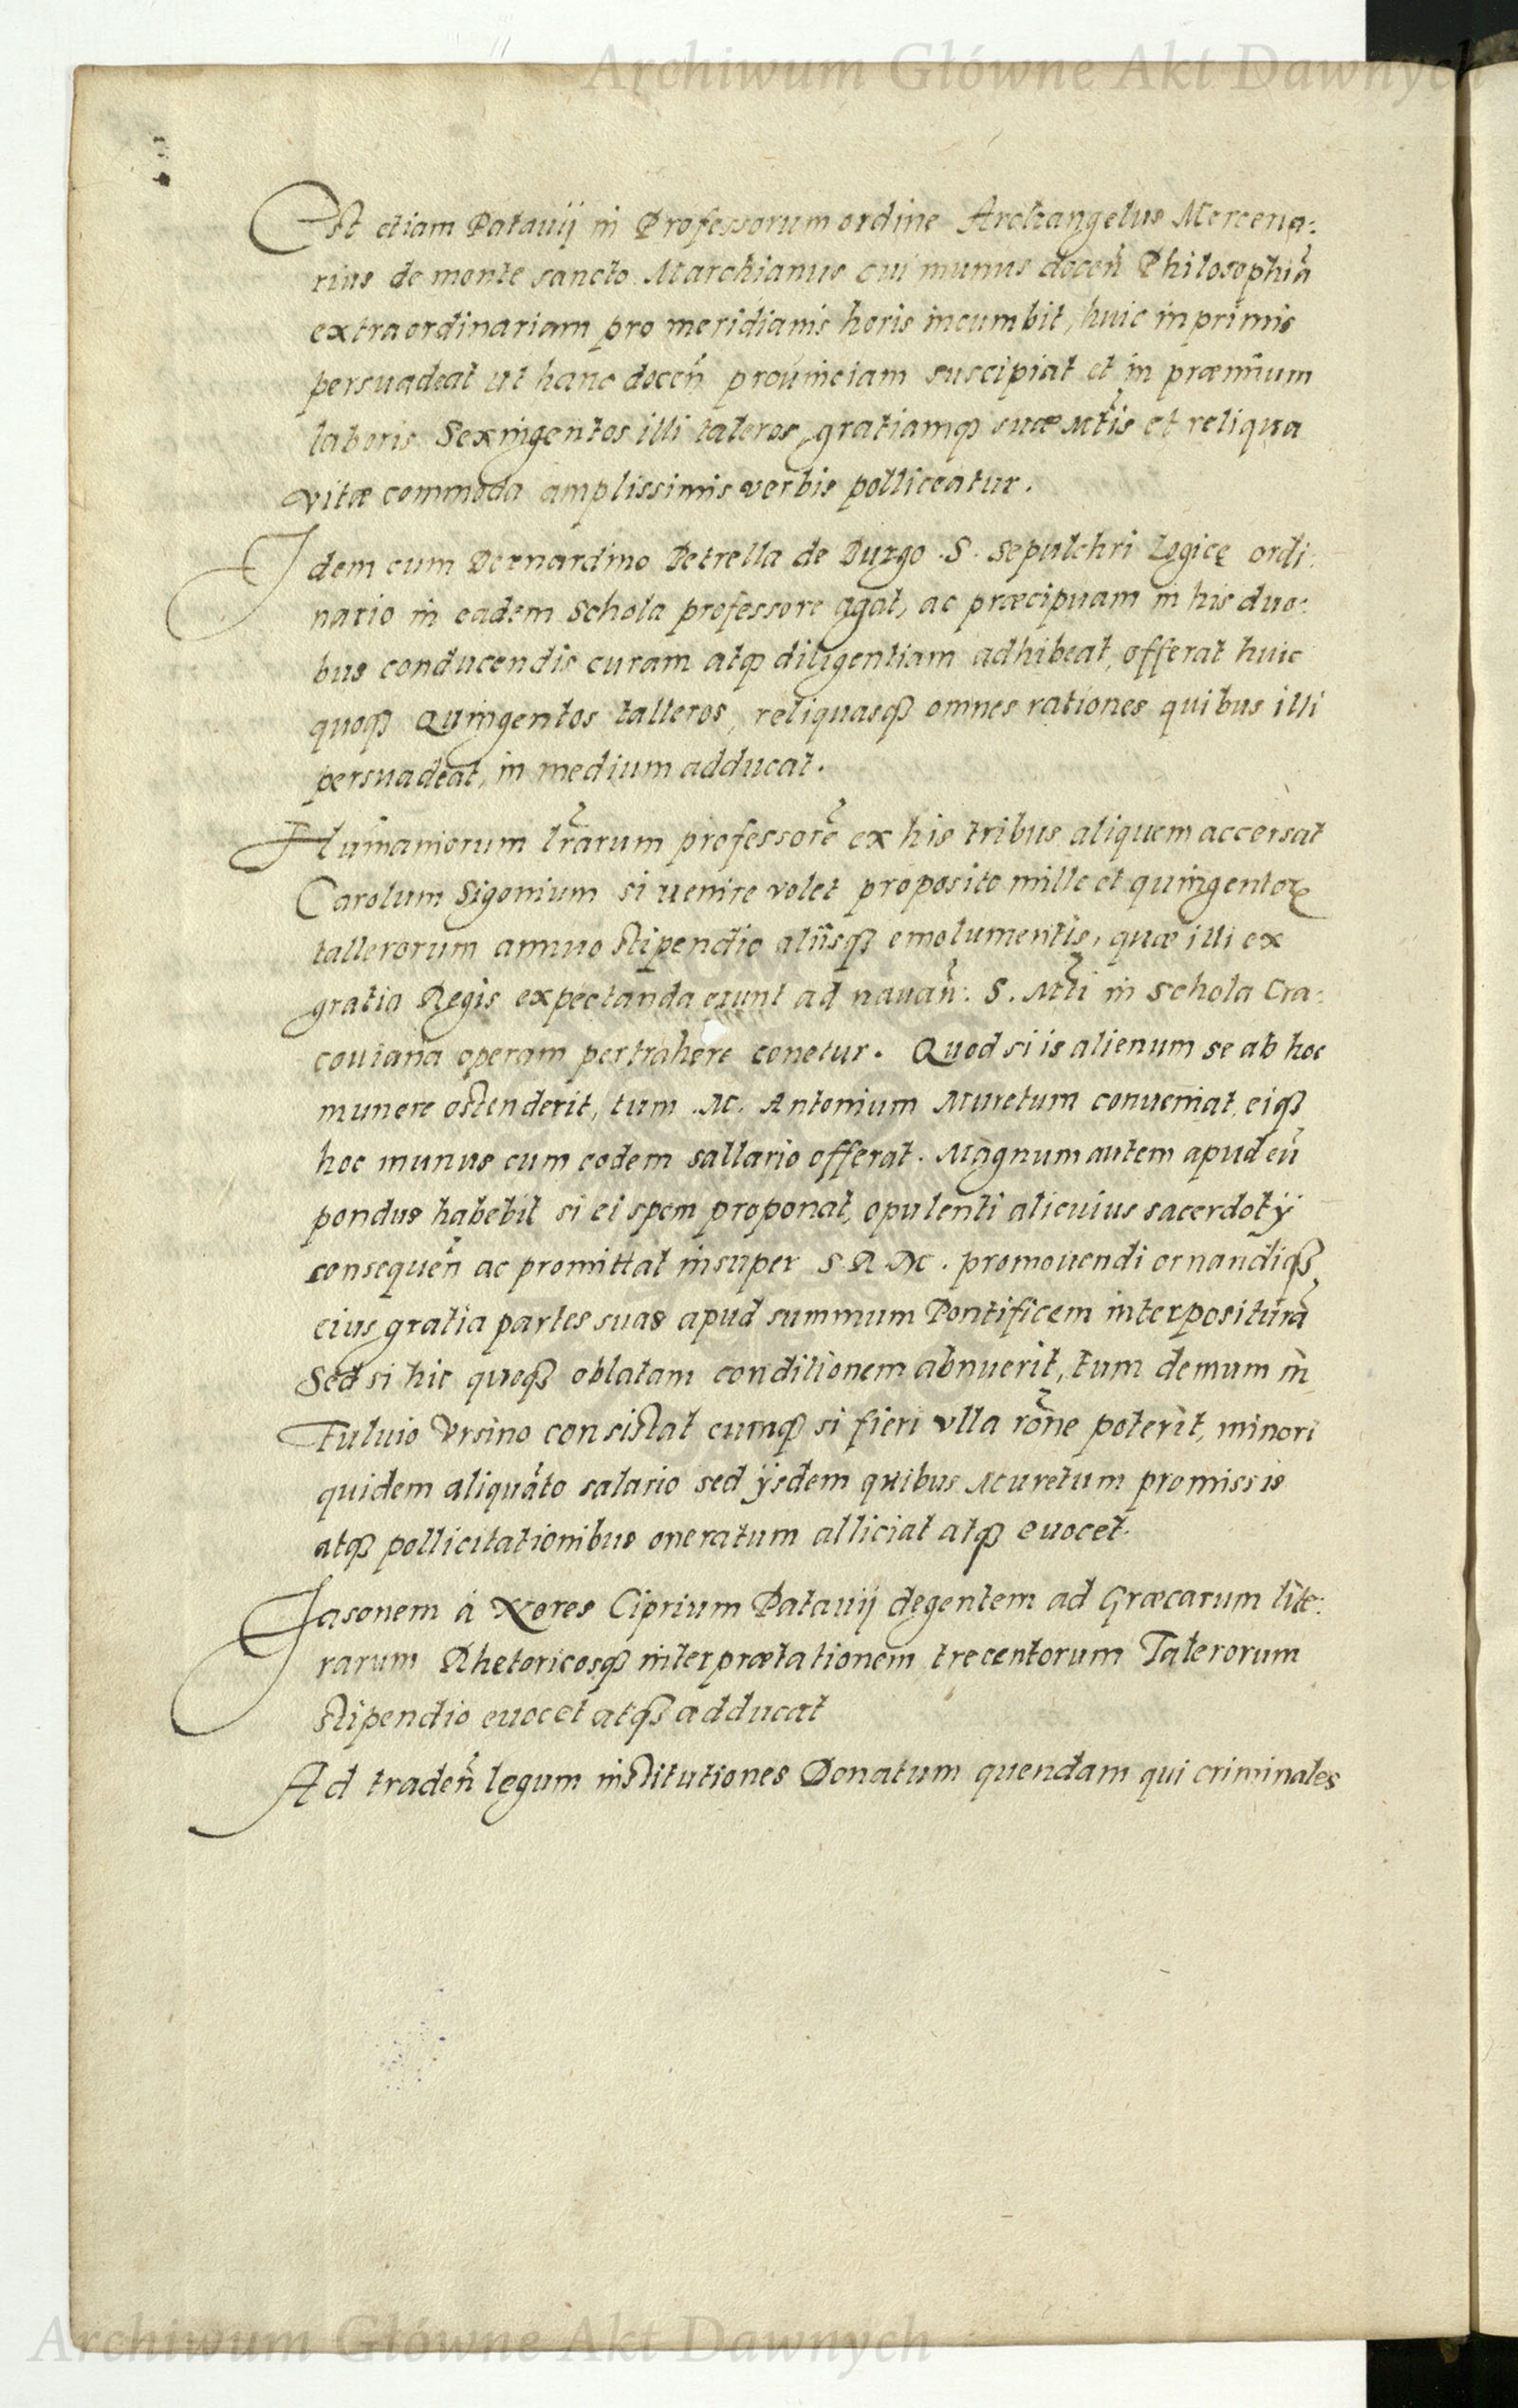 Archiwum Główne Akt Dawnych
Est etiam Patauij in Professorum ordine Archangelus Mercena:
rius de monte sancto Marchianus cui munus docen̄ Philosophiā
extraordinariam pro meridianis horis incumbit, huic inprimis
persuadeat ut hanc docen̄ prouinciam suscipiat et in præmium
laboris Sexingentos illi taleros, gratiamq̢ suæ Mt̃is et reliqua
vitæ commoda amplissimis verbis polliceatur.
Idem cum Bernardino Petrella de Burgo . S . Sepulchri Logicę ordi:
nario in eadem Schola professore agat, ac præcipuam in his duo:
bus conducendis curam atq̢ diligentiam adhibeat, offerat huic
quoq̢ Quingentos talleros, reliquasq̢ omnes rationes quibus illi
persuadeat, in medium adducat.
Humaniorum lr̃arum professorē ex his tribus aliquem accersat
Carolum Sigonium si uenire volet proposito mille et quingentorꝫ
tallerorum annuo stipendio aliisq̢ emolumentis, quæ illi ex
gratia Regis expectanda erunt ad nauan̄: S. Mt̃i in schola Cra:
couiana operam pertrahere conetur. Quod si is alienum se ab hoc
munere ostenderit, tum .M. Antonium Muretum conueniat, eiq̢
hoc munus cum eodem sallario offerat. Magnum autem apud eū
pondus habebit si ei spem proponat, opulenti alicuius sacerdotÿ
consequen̄ ac promittat insuper S R M . promouendi ornandiq̢
eius gratia partes suas apud summum Pontificem interpositurā
Sed si hic quoq̢ oblatam conditionem abnuerit, tum demum in
Fuluio Vrsino consistat eumq̢ si fieri vlla rõne poterit, minori
quidem aliquāto salario sed ÿsdem quibus Muretum promissis
atq̢ pollicitationibus oneratum alliciat atq̢ euocet.
Jasonem à Nores Ciprium Patauij degentem ad Græcarum lite:
rarum Rhetoricosq̢ interprætationem trecentorum Talerorum
stipendio euocet atq̢ adducat
Ad traden̄ legum institutiones Donatum quendam qui criminales
Archiwum Główne Akt Dawnych